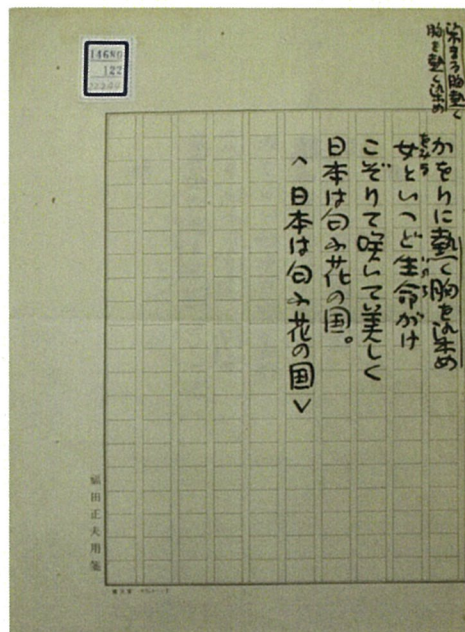 染まる胸熱く
胸を熱く染め
かをりに熱く胸を染め
女といつど生命がけ
をみな
いのち
こぞりて咲いて美しく
日本は匂ふ花の国。
へ日本は匂ふ花の国＞
14680
122
福田正夫用箋